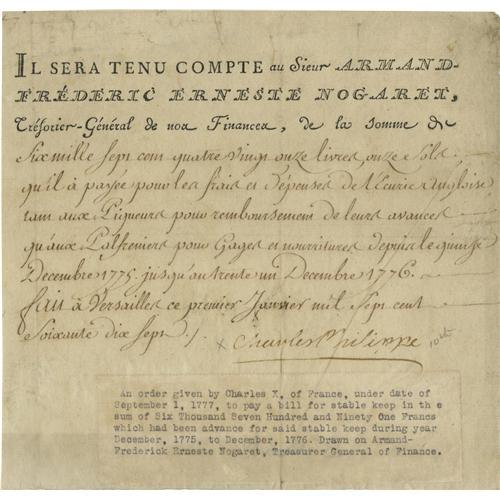 IL SERA TENU COMPTE au Sieur ARMAND-
FRÉDERIC ERNESTE NOGARET,
Trésorier-Général de nos Finances, de la somme de
Six mille sept cent quatre vingt onze livres, onze sols.
qu'il a payée pour les frais et dépenses de l'Ecurie Angloise
tant aux Piqueurs pour remboursement de leurs avances
qu'aux Palfreniers pour Gages et nourritures depuis le quinze
Decembre 1775. jusqu'au trente un Decembre 1776.
fait à Versailles ce premier Janvier mil Sept cent
Soixante dix sept ./. Charles Philippe
An order given by Charles X, of France, under date of
September 1, 1777, to pay a bill for stable keep in the
sum of Six Thousand Seven Hundred and Ninety One Francs
which had been advance for said stable keep during year
December, 1775, to December, 1776. Drawn on Armand-
Frederick Erneste Nogaret, Treasurer General of Finance.